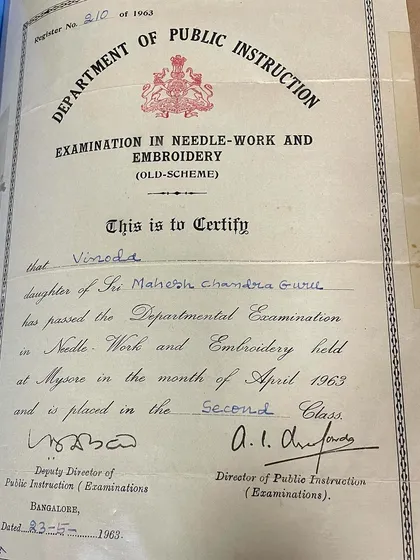 Register No. 210 of 1963
DEPARTMENT OF PUBLIC INSTRUCTION
EXAMINATION IN NEEDLE-WORK AND
EMBROIDERY
(OLD-SCHEME)
This is to Certify
that Vinoda
daughter of Sri Mahesh Chandra Guru
has passed the Departmental Examination
in Needle-Work and Embroidery held
at Mysore in the month of April 1963
and is placed in the Second Class.
Deputy Director of
Public Instruction (Examinations
Director of Public Instruction
(Examinations).
BANGALORE,
Dated...23-5-...1963.